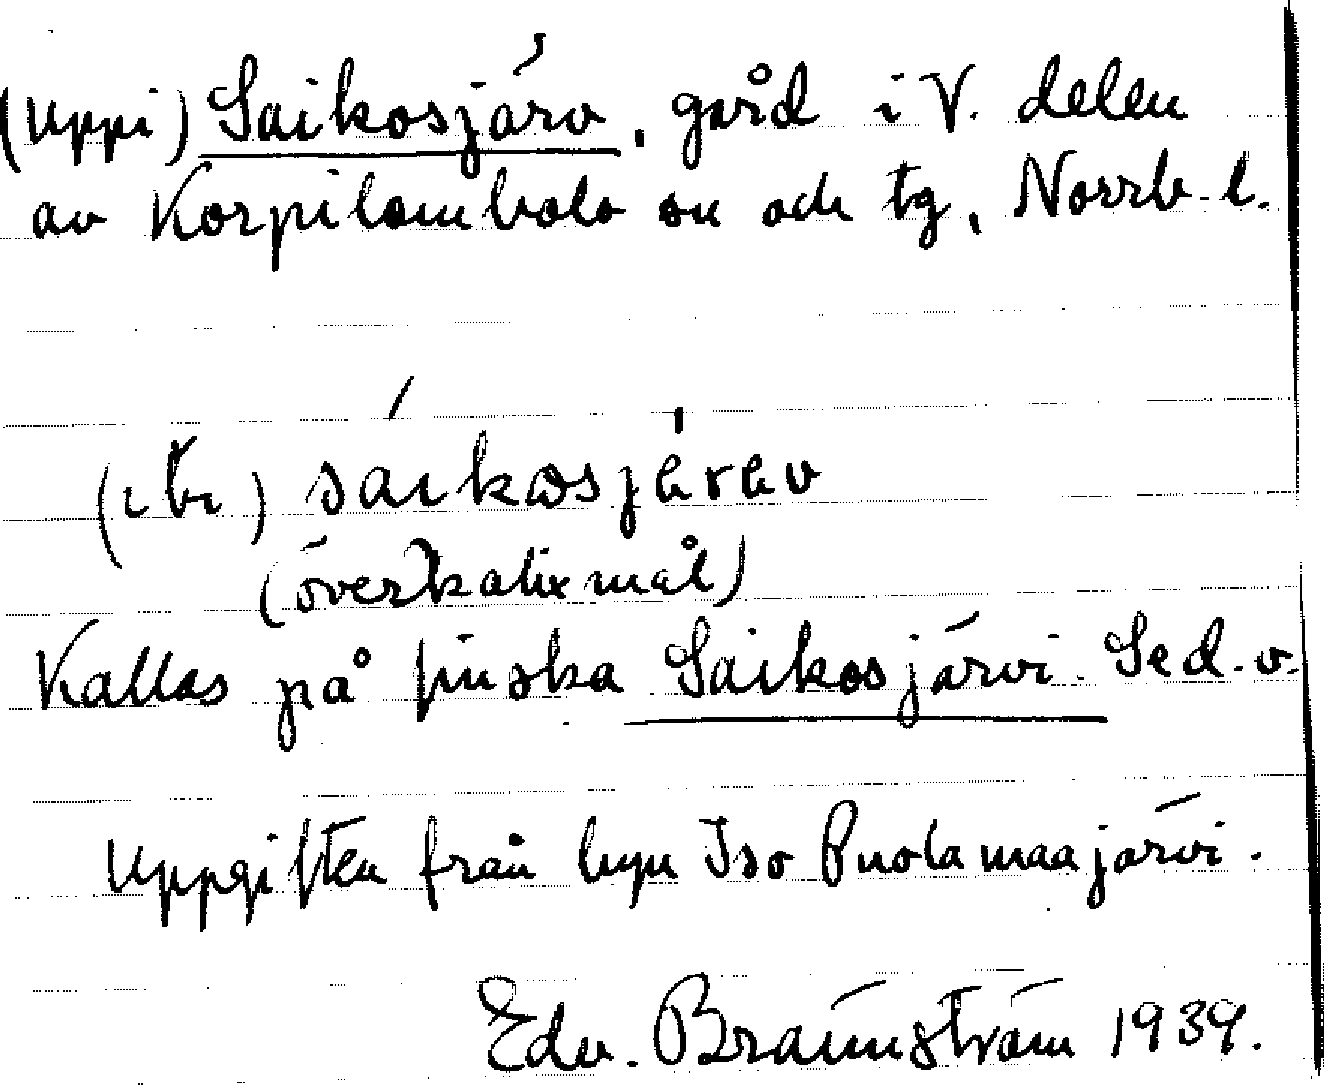 (uppi) Saikosjärv, gård i V. delen
av Korpilombolo sn och tg, Norrb. l.
sáikosjärev
(överkalixmål)
Kallas på finska Saikosjärvi. Se d. o.
Uppgiften från byn Iso Puolamaajärvi.
Edv. Brännström 1939.